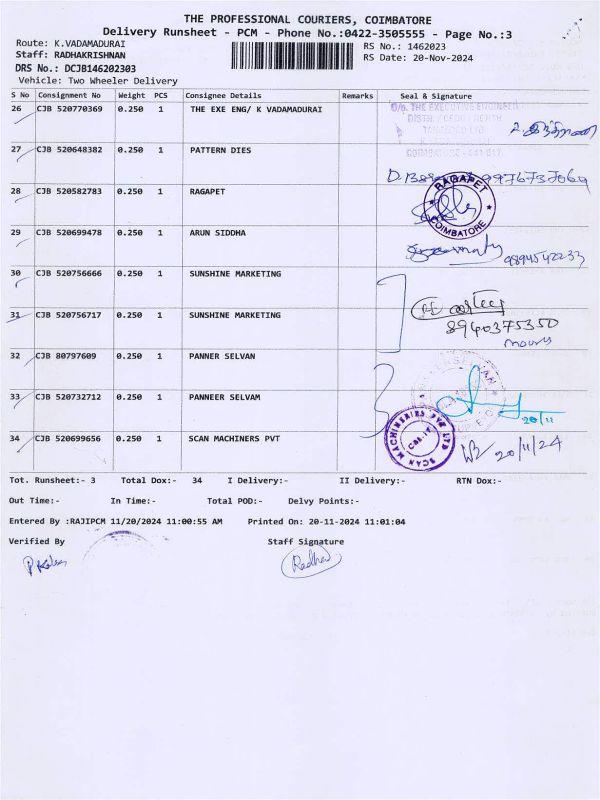 THE PROFESSIONAL COURIERS, COIMBATORE
Delivery Runsheet - PCM - Phone No.:0422-3505555 - Page No.:3
Route: K.VADAMADURAI
RS No.: 1462023
Staff: RADHAKRISHNAN
RS Date: 20-Nov-2024
DRS No.: DCJB146202303
Vehicle: Two Wheeler Delivery
S No Consignment No Weight PCS Consignee Details Remarks Seal & Signature
26 CJB 520770369 0.250 1 THE EXE ENG/ K VADAMADURAI
O/o. THE EXECUTIVE ENGINEER
27 CJB 520648382 0.250 1 PATTERN DIES
9976737069
28 CJB 520582783 0.250 1 RAGAPET
RAGAPET
COIMBATORE
29 CJB 520699478 0.250 1 ARUN SIDDHA
9894542233
30 CJB 520756666 0.250 1 SUNSHINE MARKETING
31 CJB 520756717 0.250 1 SUNSHINE MARKETING
8940375350
32 CJB 80797609 0.250 1 PANNER SELVAN
33 CJB 520732712 0.250 1 PANNEER SELVAM
20/11
34 CJB 520699656 0.250 1 SCAN MACHINERS PVT
SCAN MACHINERIES PVT LTD
20/11/24
Tot. Runsheet:- 3 Total Dox:- 34 I Delivery:- II Delivery:- RTN Dox:-
Out Time:- In Time:- Total POD:- Delvy Points:-
Entered By :RAJIPCM 11/20/2024 11:00:55 AM Printed On: 20-11-2024 11:01:04
Verified By Staff Signature
Radha